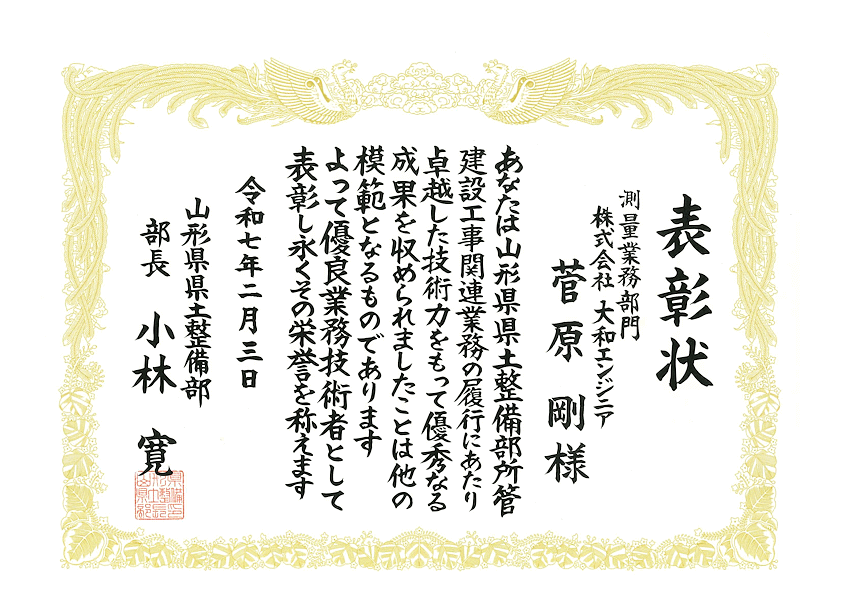 表彰状
測量業務部門
株式会社 大和エンジニア
菅原 剛 様
あなたは山形県県土整備部所管
建設工事関連業務の履行にあたり
卓越した技術力をもって優秀なる
成果を収められましたことは他の
模範となるものであります
よって優良業務技術者として
表彰し永くその栄誉を称えます
令和七年二月三日
山形県県土整備部
部長 小林 寛